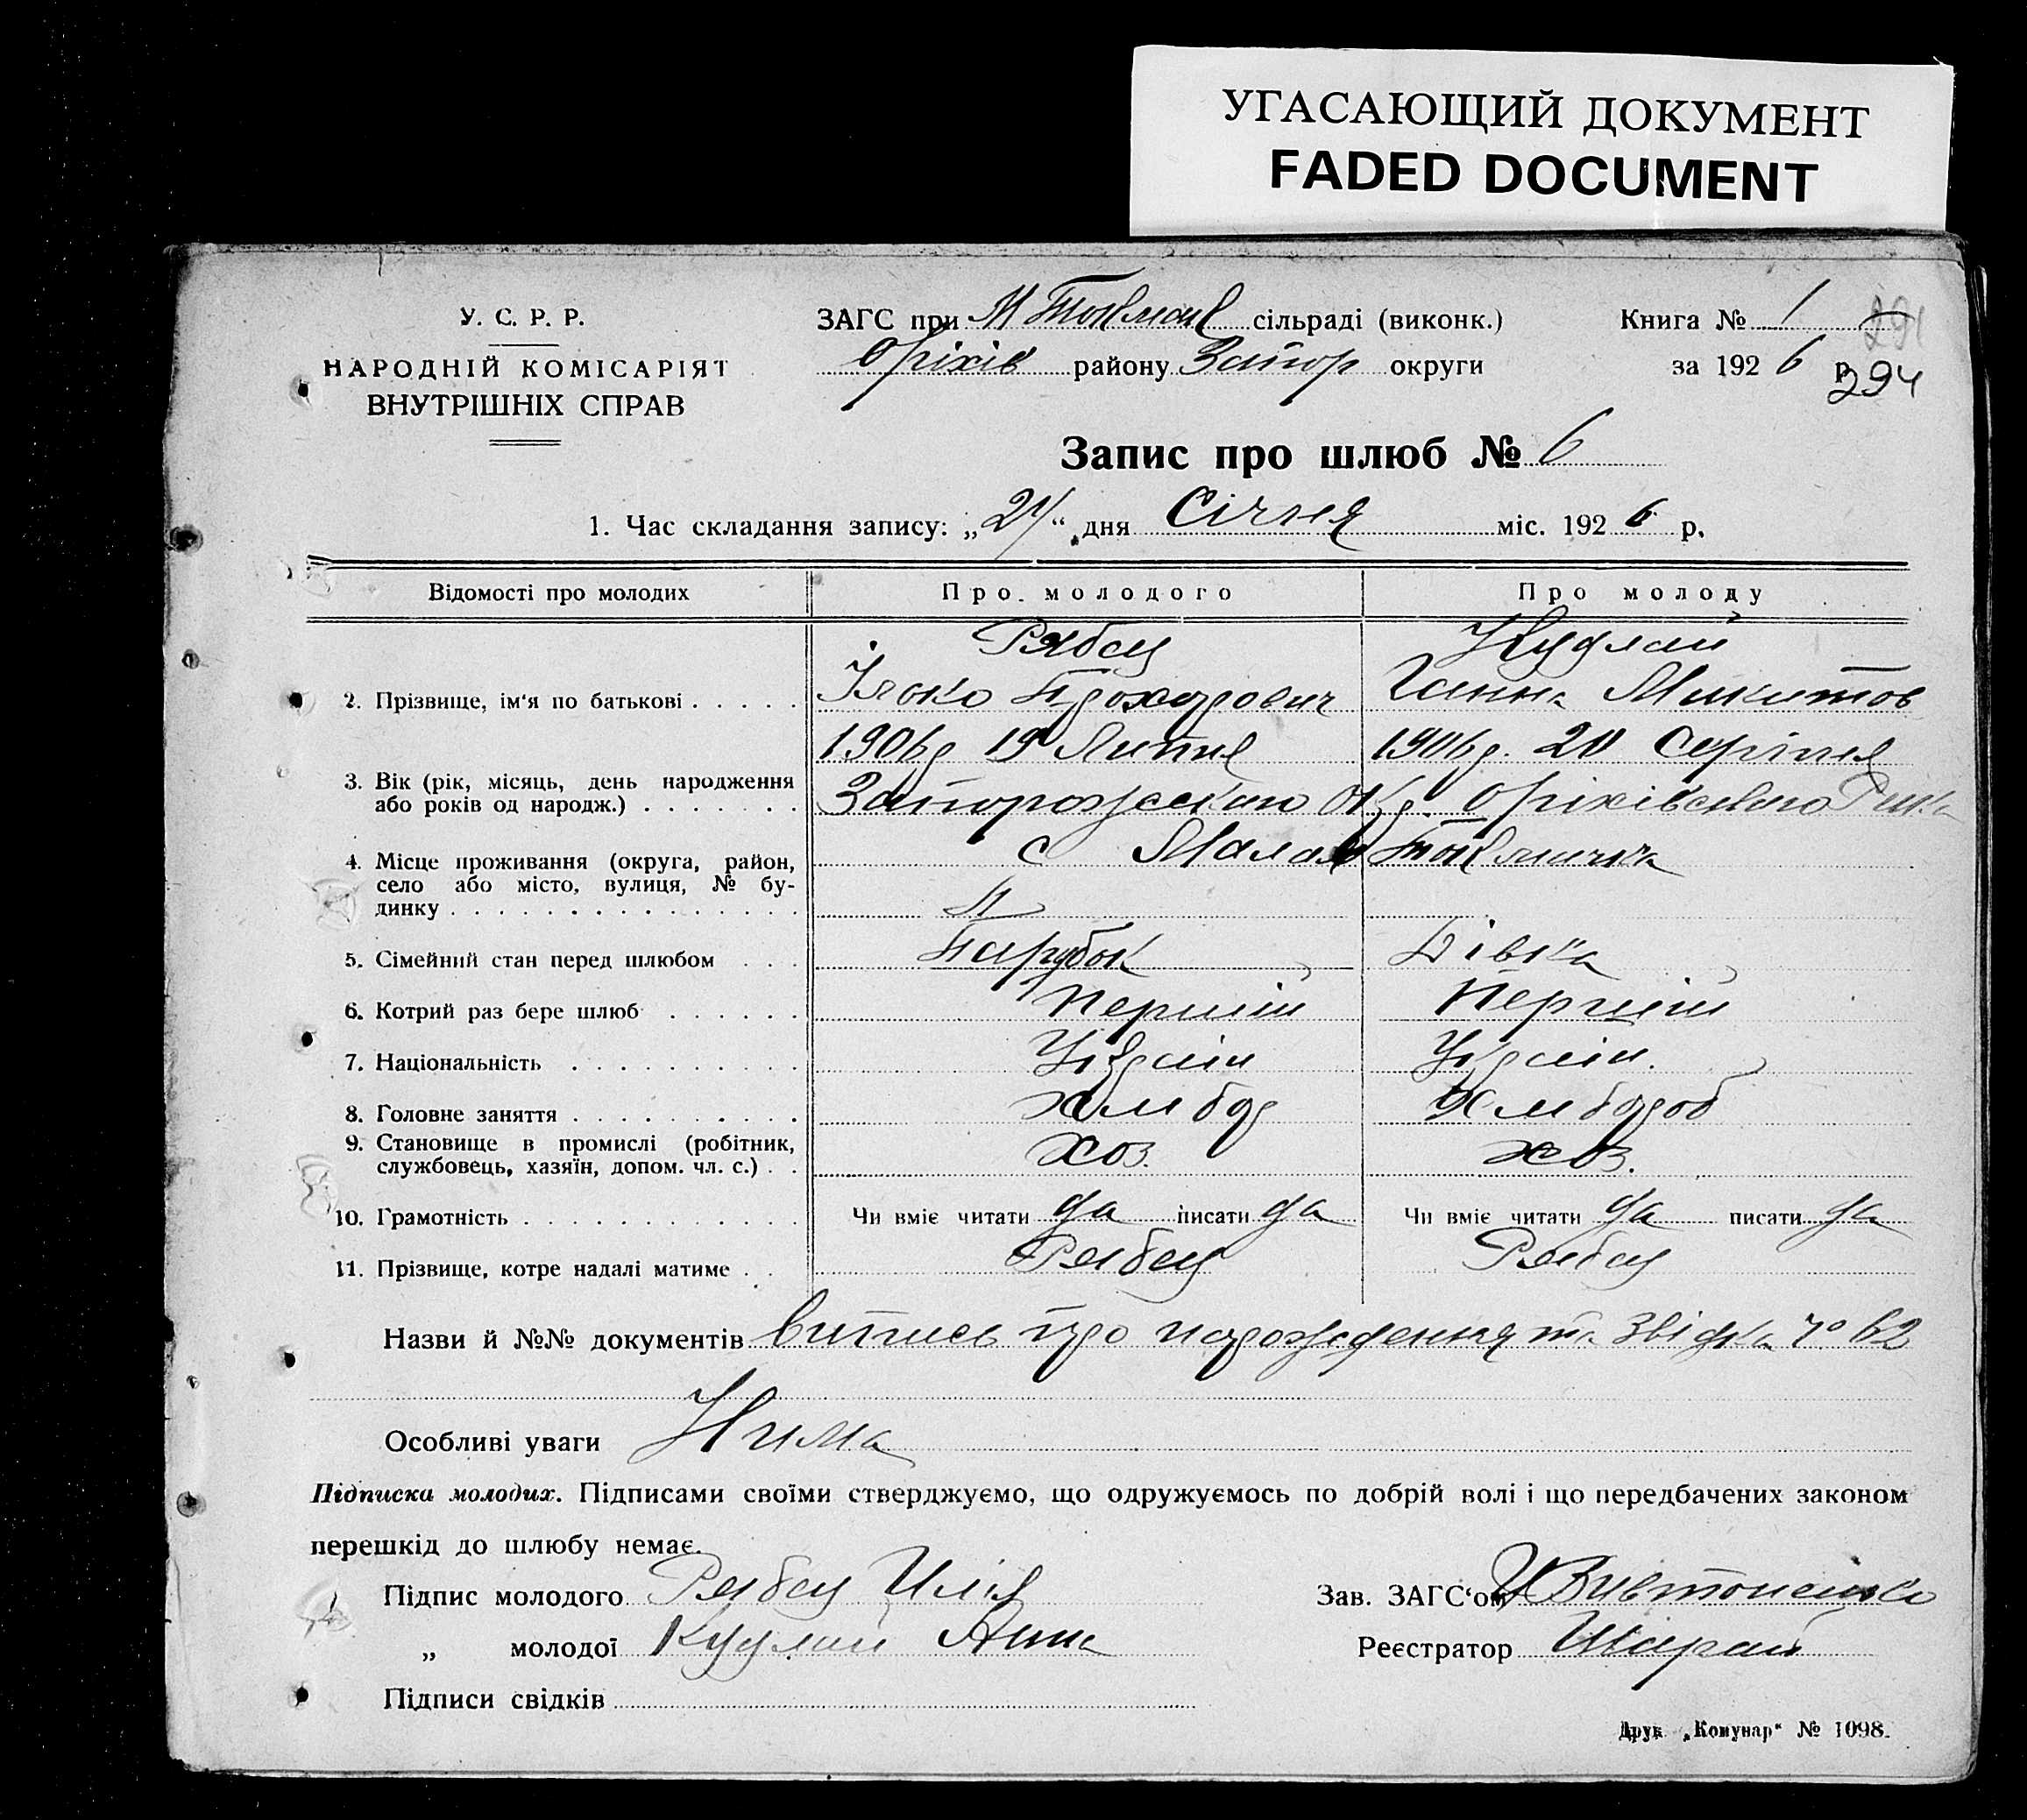 УГАСАЮЩИЙ ДОКУМЕНТ
FADED DOCUMENT
У. С. Р. Р.
НАРОДНІЙ КОМІСАРІЯТ
ВНУТРІШНІХ СПРАВ
ЗАГС при М Токмац сільраді (виконк.)
Оріхів району Запор округи
Книга № 1
291
за 1926 р.
294
Запис про шлюб № 6
1. Час складання запису: „24“ дня Січня міс. 1926 р.
Відомості про молодих Про молодого Про молоду
Рябец Кудлай
2. Прізвище, ім'я по батькові Ілько Прохорович Ганна Микитов
1906 р 19 Липня 1906 р. 20 Серпня
3. Вік (рік, місяць, день народження
або років од народж.) Запорожского Окр. Оріхівського
4. Місце проживання (округа, район,
село або місто, вулиця, № бу-
динку с Малая Токмачка
5. Сімейний стан перед шлюбом Парубок Дівка
6. Котрий раз бере шлюб Перший Перший
7. Національність Україн Україн.
8. Головне заняття хлібор хліборoб
9. Становище в промислі (робітник,
службовець, хазяїн, допом. чл. с.) хоз. хоз.
10. Грамотність Чи вміє читати да писати да Чи вміє читати да писати да
11. Прізвище, котре надалі матиме Рябец Рябец
Назви й №№ документів випись про нарождення та звідка № 62
Особливі уваги Нима
Підписка молодих. Підписами своїми стверджуємо, що одружуємось по добрій волі і що передбачених законом
перешкід до шлюбу немає.
Підпис молодого Рябец Илія Зав. ЗАГС'ом
„ молодої Кудлай Анна Реєстратор
Підписи свідків
Друк. „Комунар“ № 1098.